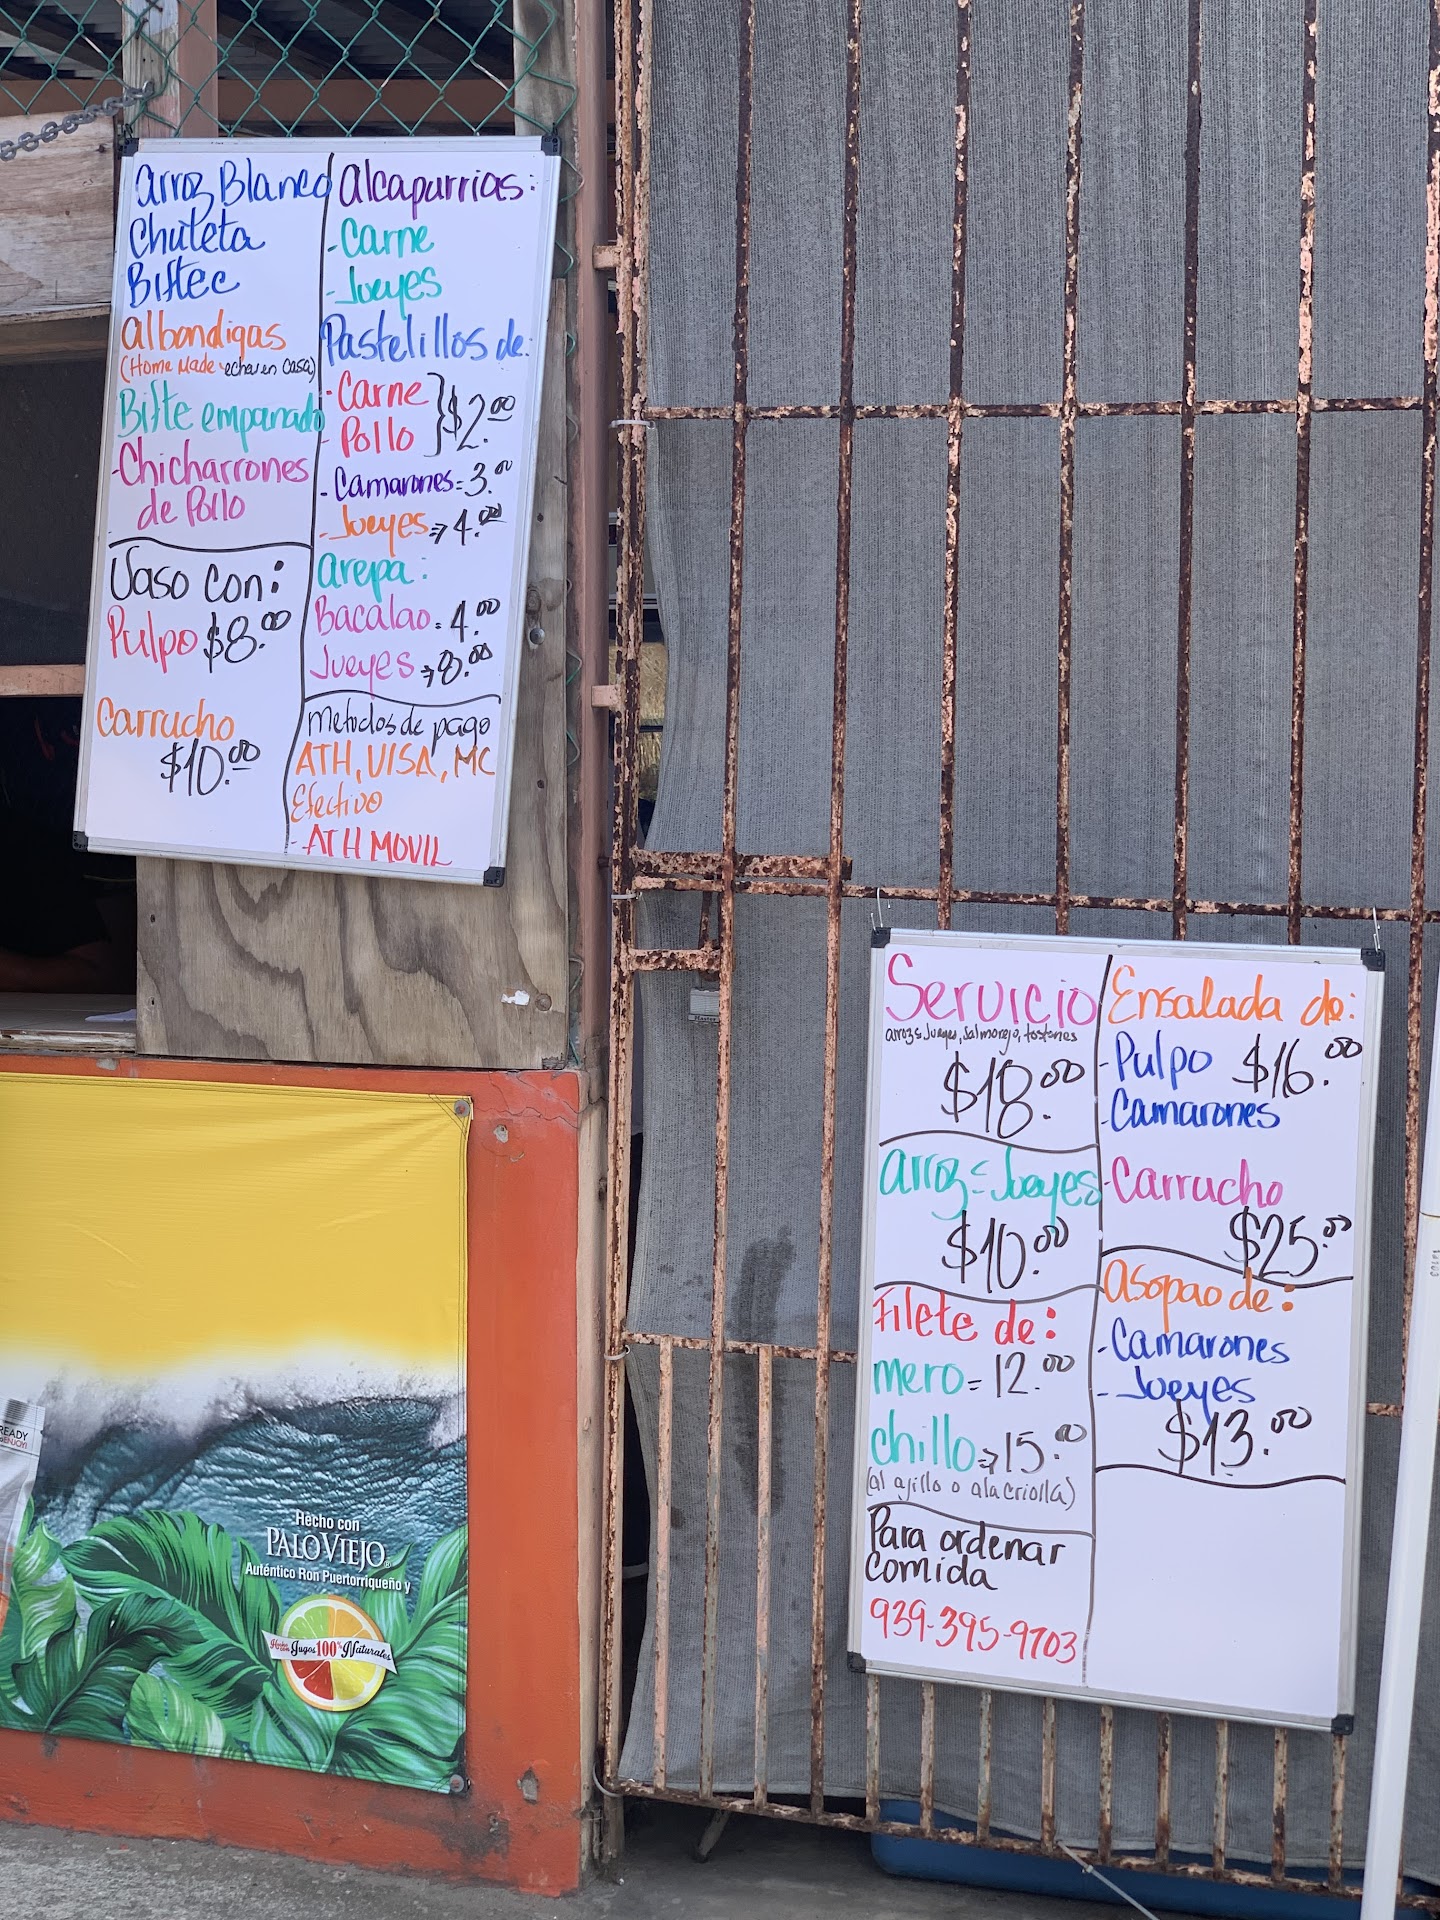 Arroz Blanco
Chuleta
Biftec
Albondigas
(Home Made - echas en casa)
Bifte empanado
-Chicharrones
de Pollo
Vaso con:
Pulpo $8.00
Carrucho
$10.00
Alcapurrias:
-Carne
-Jueyes
Pastelillos de:
- Carne
- Pollo } $2.00
- Camarones = 3.00
- Jueyes → 4.00
Arepa:
Bacalao = 4.00
Jueyes → 8.00
Metodos de pago
ATH, VISA, MC
Efectivo
- ATH MOVIL
Servicio
arroz c jueyes, salmorejo, tostones
$18.00
Arroz c Jueyes
$10.00
Filete de:
mero = 12.00
chillo → 15.00
(al ajillo o a la criolla)
Para ordenar
comida
939-395-9703
Ensalada de:
- Pulpo $16.00
- Camarones
- Carrucho
$25.00
Asopao de:
- Camarones
- Jueyes
$13.00
READY
ENJOY!
Hecho con
PALO VIEJO®
Auténtico Ron Puertorriqueño y
Hecho con Jugos 100% Naturales
Master